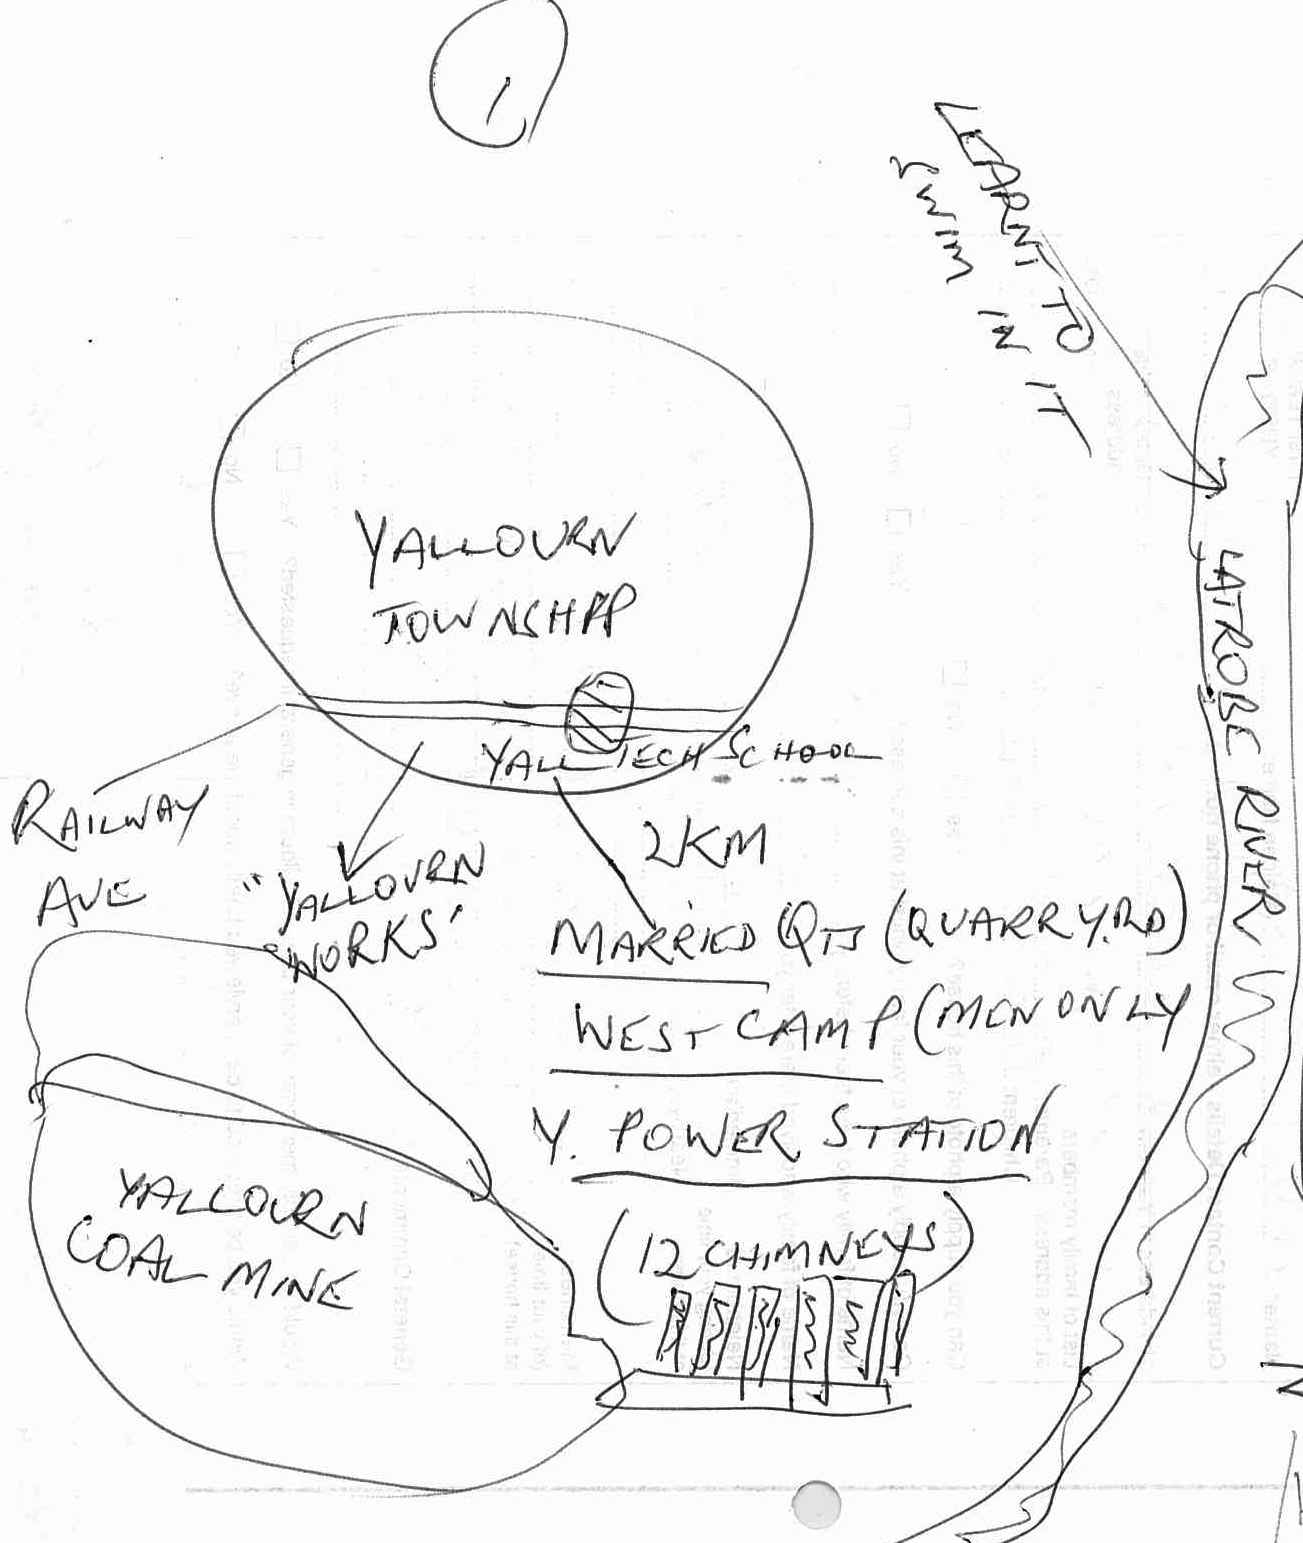 1
LEARNT TO
SWIM IN IT
YALLOURN
TOWNSHPP
YALL TECH SCHOOL
LATROBE RIVER
RAILWAY
AVE
"YALLOURN
"WORKS'
2KM
MARRIED QTS (QUARRY.RD)
WEST CAMP (MEN ONLY
Y. POWER STATION
(12 CHIMNEYS)
YALLOURN
COAL MINE
N